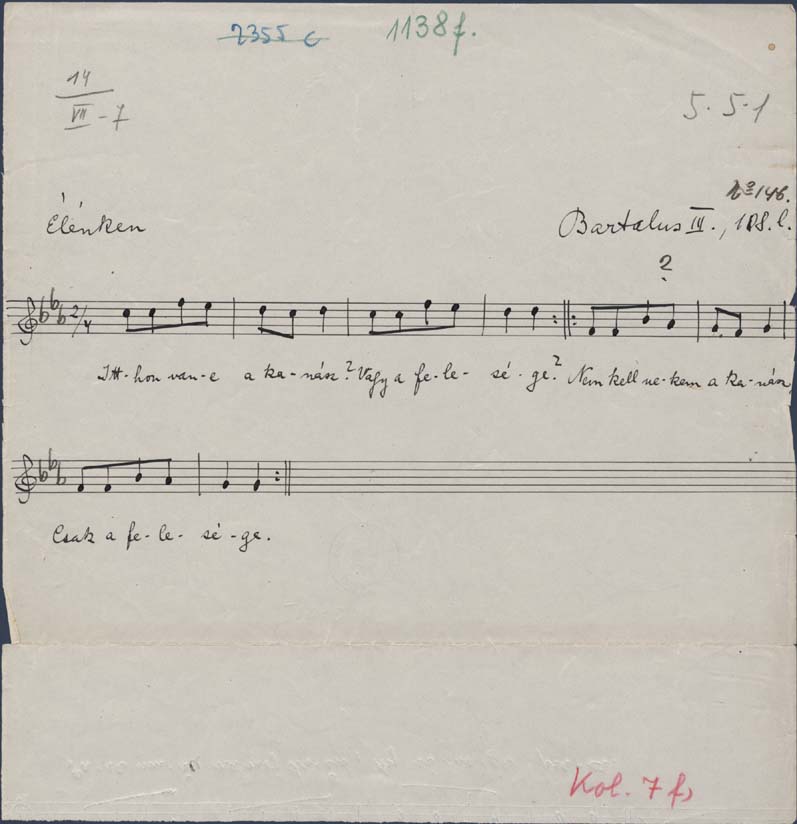 2355 c 1138f.
14
VII - 7
5. 5. 1
No 146.
Élénken Bartalus III., 108. l.
?
2/4
Itt-hon van-e a ka-nász? Vagy a fe-le- sé-ge? Nem kell ne-kem a ka-nász
Csak a fe-le- sé-ge.
Kol. 7 f